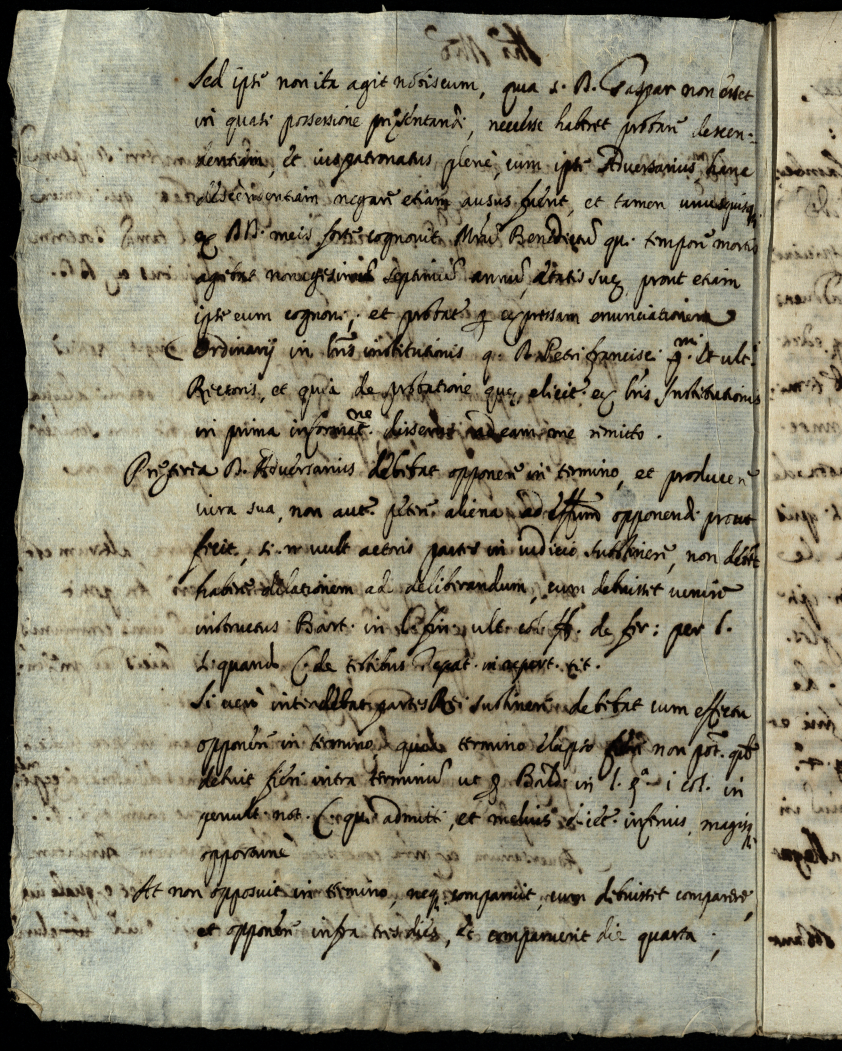 Sed ipse non ita agit nobiscum, quia s. D. Gaspar non esset
in quasi possessione presentandi, necesse haberet probare descen-
dentiam, et iuspatronatus plene, cum ipse Adversarius hanc
descendentiam negare etiam ausus fuerit, et tamen unusquisq.
ex DD. meis forte cognovit Benedictum qui tempore mortis
agebat nonagesimum septimum annum etatis sue, prout etiam
ipse eum cognovi; et probat. expressam enunciationem
Ordinarij in bris institutionis q. D. Petri francisci et ult.
Rectoris, et quia de probatione que elicit. ex bris Institutionis
in prima informatne. disserui ad eam me remitto.
Preterea D. Adversarius debebat opponere in termino, et producere
iura sua, non aut. petere aliena ad effectum opponendi prout
fecit, si n. vult actoris partes in iudicio sustinere, non debet
habere dilationem ad deliberandum, cum debuisset venire
instructus Bart. in ult. ff. de fer: per l.
si quando C. de testibus in repert.
Si vero intendebat partes Rei sustinere debebat cum effectu
opponere in termino quo termino elapso non pot. quod
debuit fieri intra terminum ut Bald. in l. i col. in
penult. not. C. qui admitti, et melius dicet. inferius, magisq.
opportune
At non opposuit in termino, neq. comparuit, cum debuisset comparere,
et opponere infra tres dies, et comparuerit die quarta;